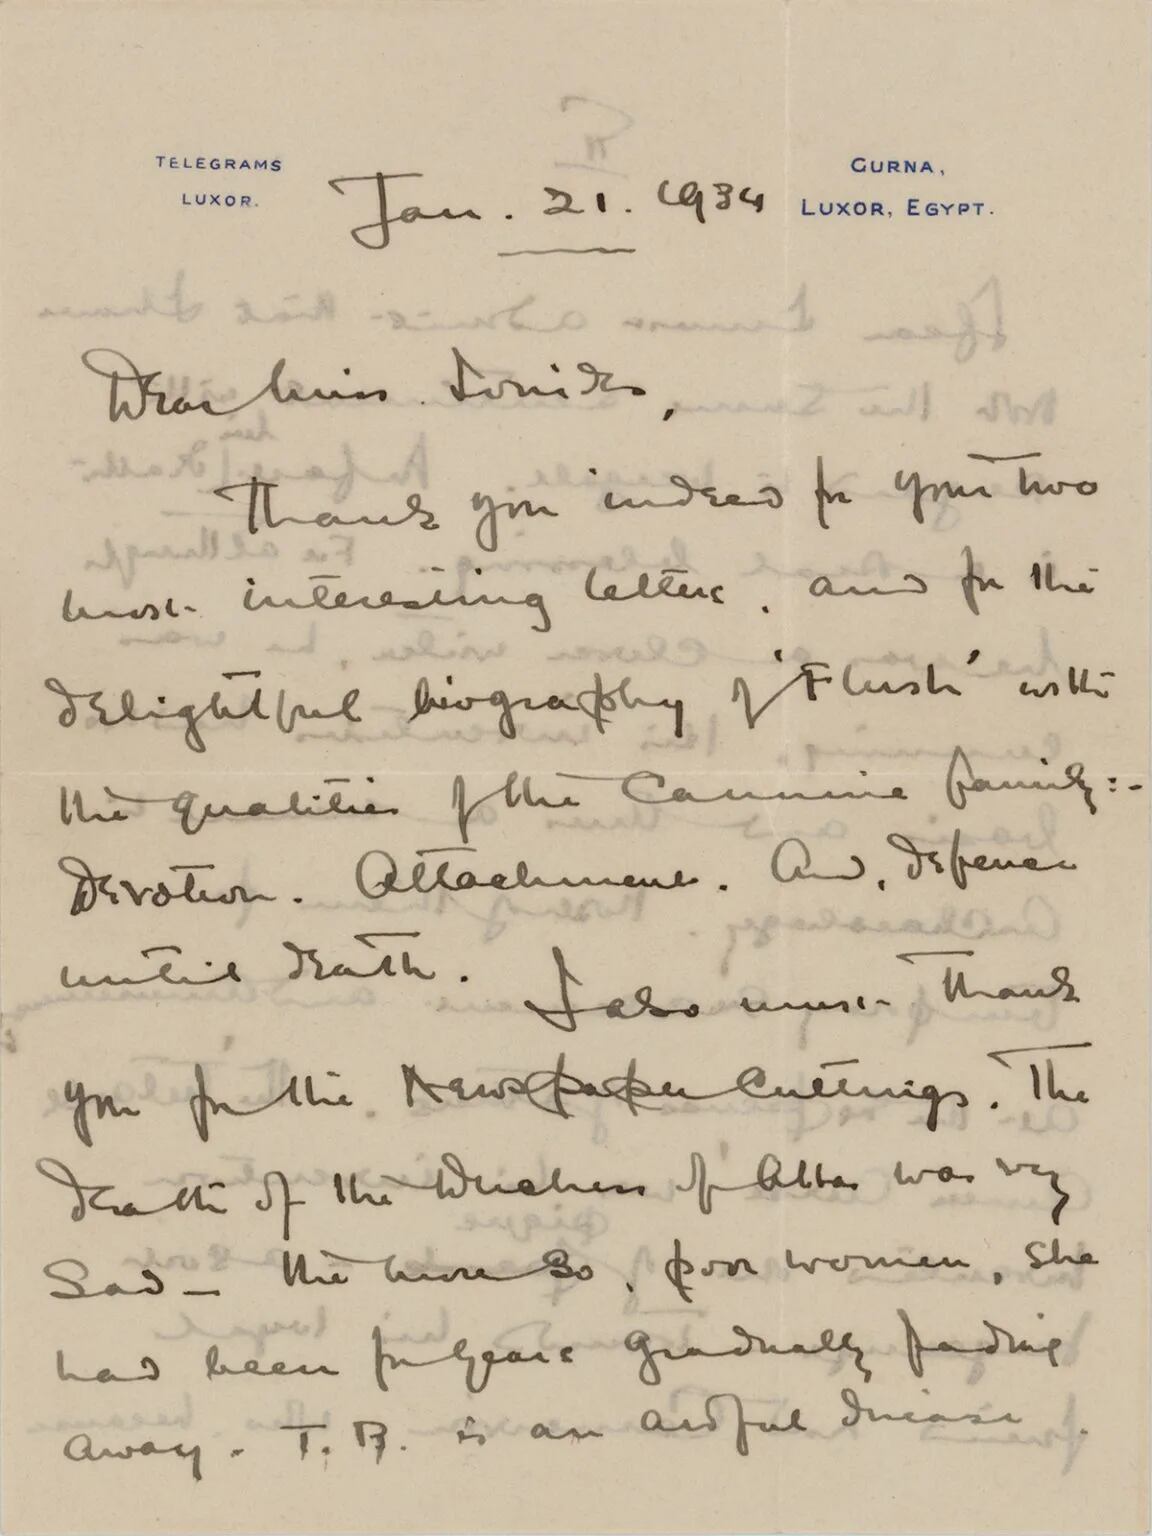 TELEGRAMS
LUXOR.
GURNA,
LUXOR, EGYPT.
Jan. 21. 1934
Dear Miss Ionides,
Thank you indeed for your two
most interesting letters, and for the
delightful biography of 'Flush' with
the qualities of the Cannine family:-
Devotion. Attachment. And, defence
until death. I also must thank
you for the Newspaper Cuttings. The
death of the Duchess of Alba was very
Sad – the more so, poor women, she
had been for years gradually fading
away. T. B. is an awful disease.